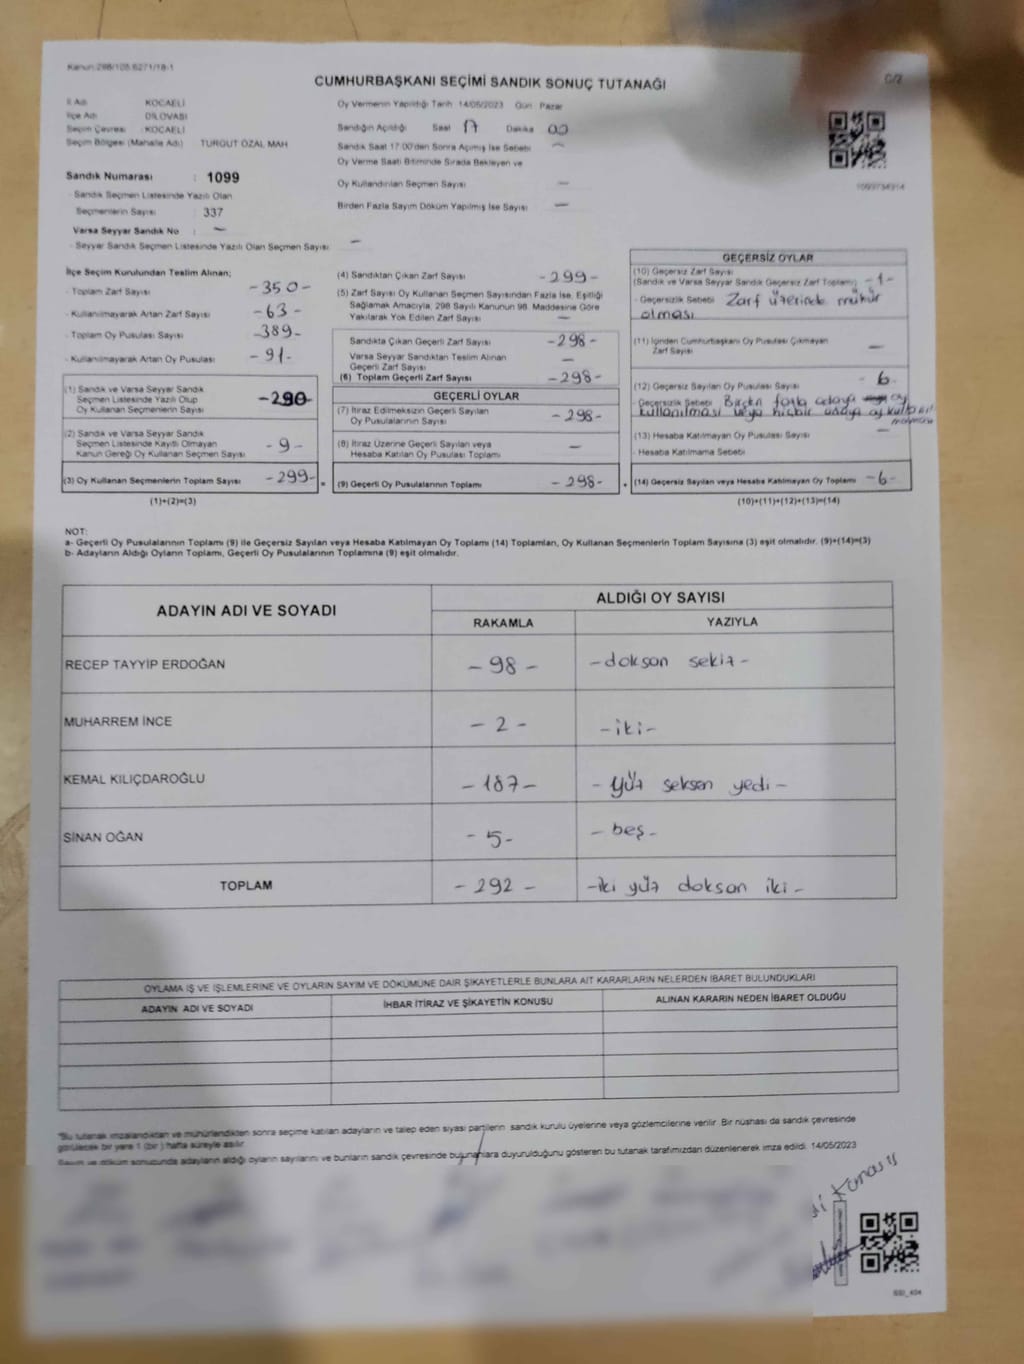 Kanun:298/105,6271/18-1
CUMHURBAŞKANI SEÇİMİ SANDIK SONUÇ TUTANAĞI
C/2
İl Adı KOCAELİ
İlçe Adı DİLOVASI
Seçim Çevresi : KOCAELİ
Seçim Bölgesi (Mahalle Adı) TURGUT ÖZAL MAH
Sandık Numarası : 1099
Sandık Seçmen Listesinde Yazılı Olan
Seçmenlerin Sayısı : 337
Varsa Seyyar Sandık No : -
- Seyyar Sandık Seçmen Listesinde Yazılı Olan Seçmen Sayısı : -
Oy Vermenin Yapıldığı Tarih 14/05/2023 Gün Pazar
Sandığın Açıldığı Saat 17 Dakika 00
Sandık Saat 17:00'den Sonra Açımış İse Sebebi -
Oy Verme Saati Bitiminde Sırada Bekleyen ve
Oy Kullandırılan Seçmen Sayısı -
Birden Fazla Sayım Döküm Yapılmış İse Sayısı -
1099734914
İlçe Seçim Kurulundan Teslim Alınan;
- Toplam Zarf Sayısı -350-
- Kullanılmayarak Artan Zarf Sayısı -63-
- Toplam Oy Pusulası Sayısı -389-
- Kullanılmayarak Artan Oy Pusulası -91-
(1) Sandık ve Varsa Seyyar Sandık
Seçmen Listesinde Yazılı Olup
Oy Kullanan Seçmenlerin Sayısı -290-
(2) Sandık ve Varsa Seyyar Sandık
Seçmen Listesinde Kayıtlı Olmayan
Kanun Gereği Oy Kullanan Seçmen Sayısı -9-
(3) Oy Kullanan Seçmenlerin Toplam Sayısı -299-
(1)+(2)=(3)
(4) Sandıktan Çıkan Zarf Sayısı -299-
(5) Zarf Sayısı Oy Kullanan Seçmen Sayısından Fazla İse, Eşitliği
Sağlamak Amacıyla, 298 Sayılı Kanunun 98. Maddesine Göre
Yakılarak Yok Edilen Zarf Sayısı -
Sandıkta Çıkan Geçerli Zarf Sayısı -298-
Varsa Seyyar Sandıktan Teslim Alınan
Geçerli Zarf Sayısı -
(6) Toplam Geçerli Zarf Sayısı -298-
GEÇERLİ OYLAR
(7) İtiraz Edilmeksizin Geçerli Sayılan
Oy Pusulalarının Sayısı -298-
(8) İtiraz Üzerine Geçerli Sayılan veya
Hesaba Katılan Oy Pusulası Toplamı -
= (9) Geçerli Oy Pusulalarının Toplamı -298-
GEÇERSİZ OYLAR
(10) Geçersiz Zarf Sayısı
(Sandık ve Varsa Seyyar Sandık Geçersiz Zarf Toplamı) -1-
- Geçersizlik Sebebi Zarf üzerinde mühür
olması
(11) İçinden Cumhurbaşkanı Oy Pusulası Çıkmayan
Zarf Sayısı -
(12) Geçersiz Sayılan Oy Pusulası Sayısı -6-
- Geçersizlik Sebebi Birden fazla adaya oy
kullanılması veya hiçbir adaya oy
(13) Hesaba Katılmayan Oy Pusulası Sayısı -
- Hesaba Katılmama Sebebi
+ (14) Geçersiz Sayılan veya Hesaba Katılmayan Oy Toplamı -6-
(10)+(11)+(12)+(13)=(14)
NOT:
a- Geçerli Oy Pusulalarının Toplamı (9) ile Geçersiz Sayılan veya Hesaba Katılmayan Oy Toplamı (14) Toplamları, Oy Kullanan Seçmenlerin Toplam Sayısına (3) eşit olmalıdır. (9)+(14)=(3)
b- Adayların Aldığı Oyların Toplamı, Geçerli Oy Pusulalarının Toplamına (9) eşit olmalıdır.
ADAYIN ADI VE SOYADI
ALDIĞI OY SAYISI
RAKAMLA YAZIYLA
RECEP TAYYİP ERDOĞAN -98- -doksan sekiz-
MUHARREM İNCE -2- -iki-
KEMAL KILIÇDAROĞLU -187- -yüz seksen yedi-
SİNAN OĞAN -5- -beş-
TOPLAM -292- -iki yüz doksan iki-
OYLAMA İŞ VE İŞLEMLERİNE VE OYLARIN SAYIM VE DÖKÜMÜNE DAİR ŞİKAYETLERLE BUNLARA AİT KARARLARIN NELERDEN İBARET BULUNDUKLARI
ADAYIN ADI VE SOYADI İHBAR İTİRAZ VE ŞİKAYETİN KONUSU ALINAN KARARIN NEDEN İBARET OLDUĞU
"Bu tutanak imzalandıktan ve mühürlendikten sonra seçime katılan adayların ve talep eden siyasi partilerin sandık kurulu üyelerine veya gözlemcilerine verilir. Bir nüshası da sandık çevresinde
görülecek bir yere 1 (bir ) hafta süreyle asılır.
Sayım ve döküm sonucunda adayların aldığı oyların sayılarını ve bunların sandık çevresinde bulunanlara duyurulduğunu gösteren bu tutanak tarafımızdan düzenlenerek imza edildi. 14/05/2023